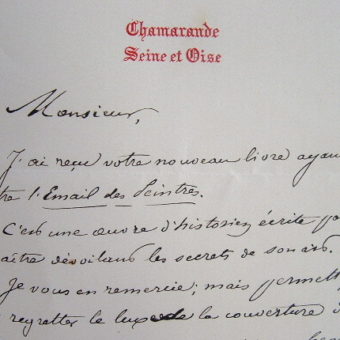 Chamarande
Seine et Oise
Monsieur,
J'ai reçu votre nouveau livre ayan
tre l'Email des Peintres.
C'est une œuvre d'histoire, écrite pa
aître dévoilant les secrets de son art.
Je vous en remercie; mais permett
regretter le luxe de la couverture